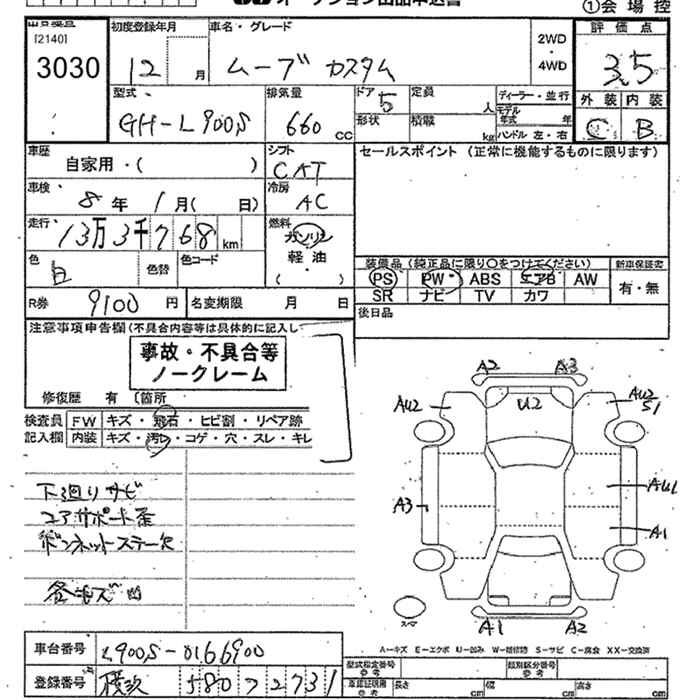 オークション出品申込書
①会場控
出品店登
[2140]
3030
初度登録年月
12 月
車名・グレード
ムーブ カスタム
2WD
・
4WD
評価点
3.5
外装 内装
C B
型式
GH-L900S
排気量
660 CC
ドア
5
定員
人
形状
積載
kg
ディーラー・並行
モデル年式 年
ハンドル 左・右
車歴
自家用・( )
シフト
CAT
セールスポイント (正常に機能するものに限ります)
車検
8年 1月( 日)
冷房
AC
走行
13万3千768km
燃料
ガソリン
軽油
( )
色
白
色替
色コード
装備品 (純正品に限り○をつけてください)
新車保証書
PS PW ABS エアB AW
SR ナビ TV カワ
有・無
R券 9100円
名変期限 月 日
後日品
注意事項申告欄(不具合内容等は具体的に記入し
事故・不具合等
ノークレーム
修復歴 有 〔箇所
検査員記入欄
FW キズ・飛石・ヒビ割・リペア跡
内装 キズ・汚レ・コゲ・穴・スレ・キレ
下廻りサビ
エアサポート歪
ボンネットステー欠
各キズ凹
A2 A3
AU2 U2 AU2
S1
A3 AU1
A1
スペア
A1 A2
A-キズ E-エクボ U-凹み W-補修跡 S-サビ C-腐食 XX-交換済
車台番号 L900S-0166900
登録番号 横浜 580 2731
型式指定番号
参考
類別区分番号
参考
車庫証明用
参考
長さ cm
幅 cm
高さ cm